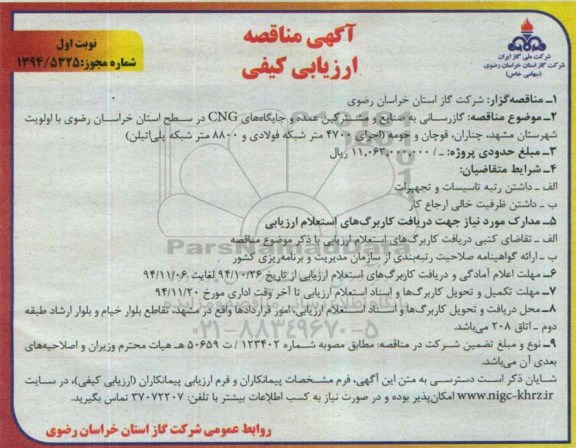 نوبت اول
شماره مجوز: ۱۳۹۴/۵۳۲۵
آگهی مناقصه
ارزیابی کیفی
شرکت ملی گاز ایران
شرکت گاز استان خراسان رضوی
(سهامی خاص)
۱ـ مناقصه‌گزار: شرکت گاز استان خراسان رضوی
۲ـ موضوع مناقصه: گازرسانی به صنایع و مشترکین عمده و جایگاه‌های CNG در سطح استان خراسان رضوی با اولویت
شهرستان مشهد، چناران، قوچان و حومه (اجرای ۴۷۰۰ متر شبکه فولادی و ۸۸۰۰ متر شبکه پلی‌اتیلن)
۳ـ مبلغ حدودی پروژه: ـ/ ۱۱,۰۶۳,۰۰۰,۰۰۰ ریال
۴ـ شرایط متقاضیان:
الف ـ داشتن رتبه تاسیسات و تجهیزات
ب ـ داشتن ظرفیت خالی ارجاع کار
۵ـ مدارک مورد نیاز جهت دریافت کاربرگ‌های استعلام ارزیابی
الف ـ تقاضای کتبی دریافت کاربرگ‌های استعلام ارزیابی با ذکر موضوع مناقصه
ب ـ ارائه گواهینامه صلاحیت رتبه‌بندی از سازمان مدیریت و برنامه‌ریزی کشور
۶ـ مهلت اعلام آمادگی و دریافت کاربرگ‌های استعلام ارزیابی از تاریخ ۹۴/۱۰/۲۶ لغایت ۹۴/۱۱/۰۶
۷ـ مهلت تکمیل و تحویل کاربرگ‌ها و اسناد استعلام ارزیابی تا آخر وقت اداری مورخ ۹۴/۱۱/۲۰
۸ـ محل دریافت و تحویل کاربرگ‌ها و اسناد استعلام ارزیابی، امور قراردادها واقع در مشهد، تقاطع بلوار خیام و بلوار ارشاد طبقه
دوم ـ اتاق ۲۰۸ می‌باشد.
۹ـ نوع و مبلغ تضمین شرکت در مناقصه: مطابق مصوبه شماره ۱۲۳۴۰۲ / ت ۵۰۶۵۹ هـ هیات محترم وزیران و اصلاحیه‌های
بعدی آن می‌باشد.
شایان ذکر است دسترسی به متن این آگهی، فرم مشخصات پیمانکاران و فرم ارزیابی پیمانکاران (ارزیابی کیفی)، در سایت
www.nigc-khrz.ir امکان‌پذیر بوده و در صورت نیاز به کسب اطلاعات بیشتر با تلفن: ۳۷۰۷۲۲۰۷ تماس بگیرید.
روابط عمومی شرکت گاز استان خراسان رضوی
ParsNamadData
۰۲۱-۸۸۳۴۹۶۷۰-۵